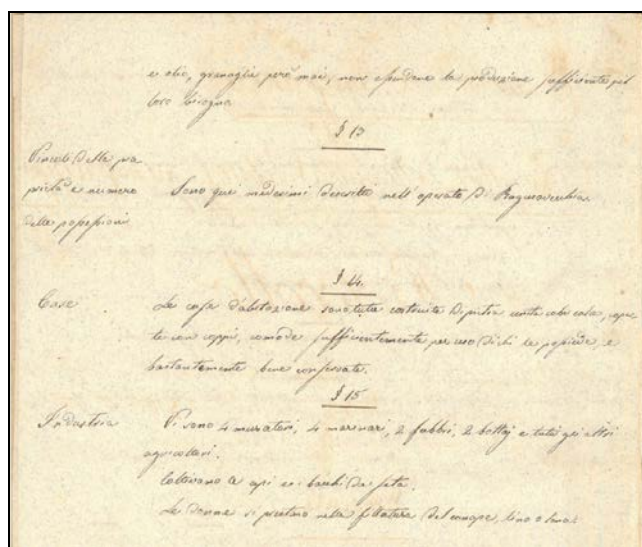 e olio, granaglie però mai, non essendone la produzione sufficiente pel
loro bisogno
§ 13
Vincoli delle pro
prietà e numero
delle possessioni
Sono quei medesimi descritti nell'operato di Ragusavecchia
§ 14.
Case
Le case d'abitazione sono tutte costruite di pietra unita colla calce, coper
te con coppi, comode sufficientemente per uso di chi le possiede, e
bastantemente bene conservate.
§ 15
Industria
Vi sono 4 muratori, 4 marinari, 2 fabbri, 2 bottaj e tutti gli altri
agricoltori.
Coltivano le api e i bachi da seta.
Le donne si prestano nella filatura del canape, lino e lana.